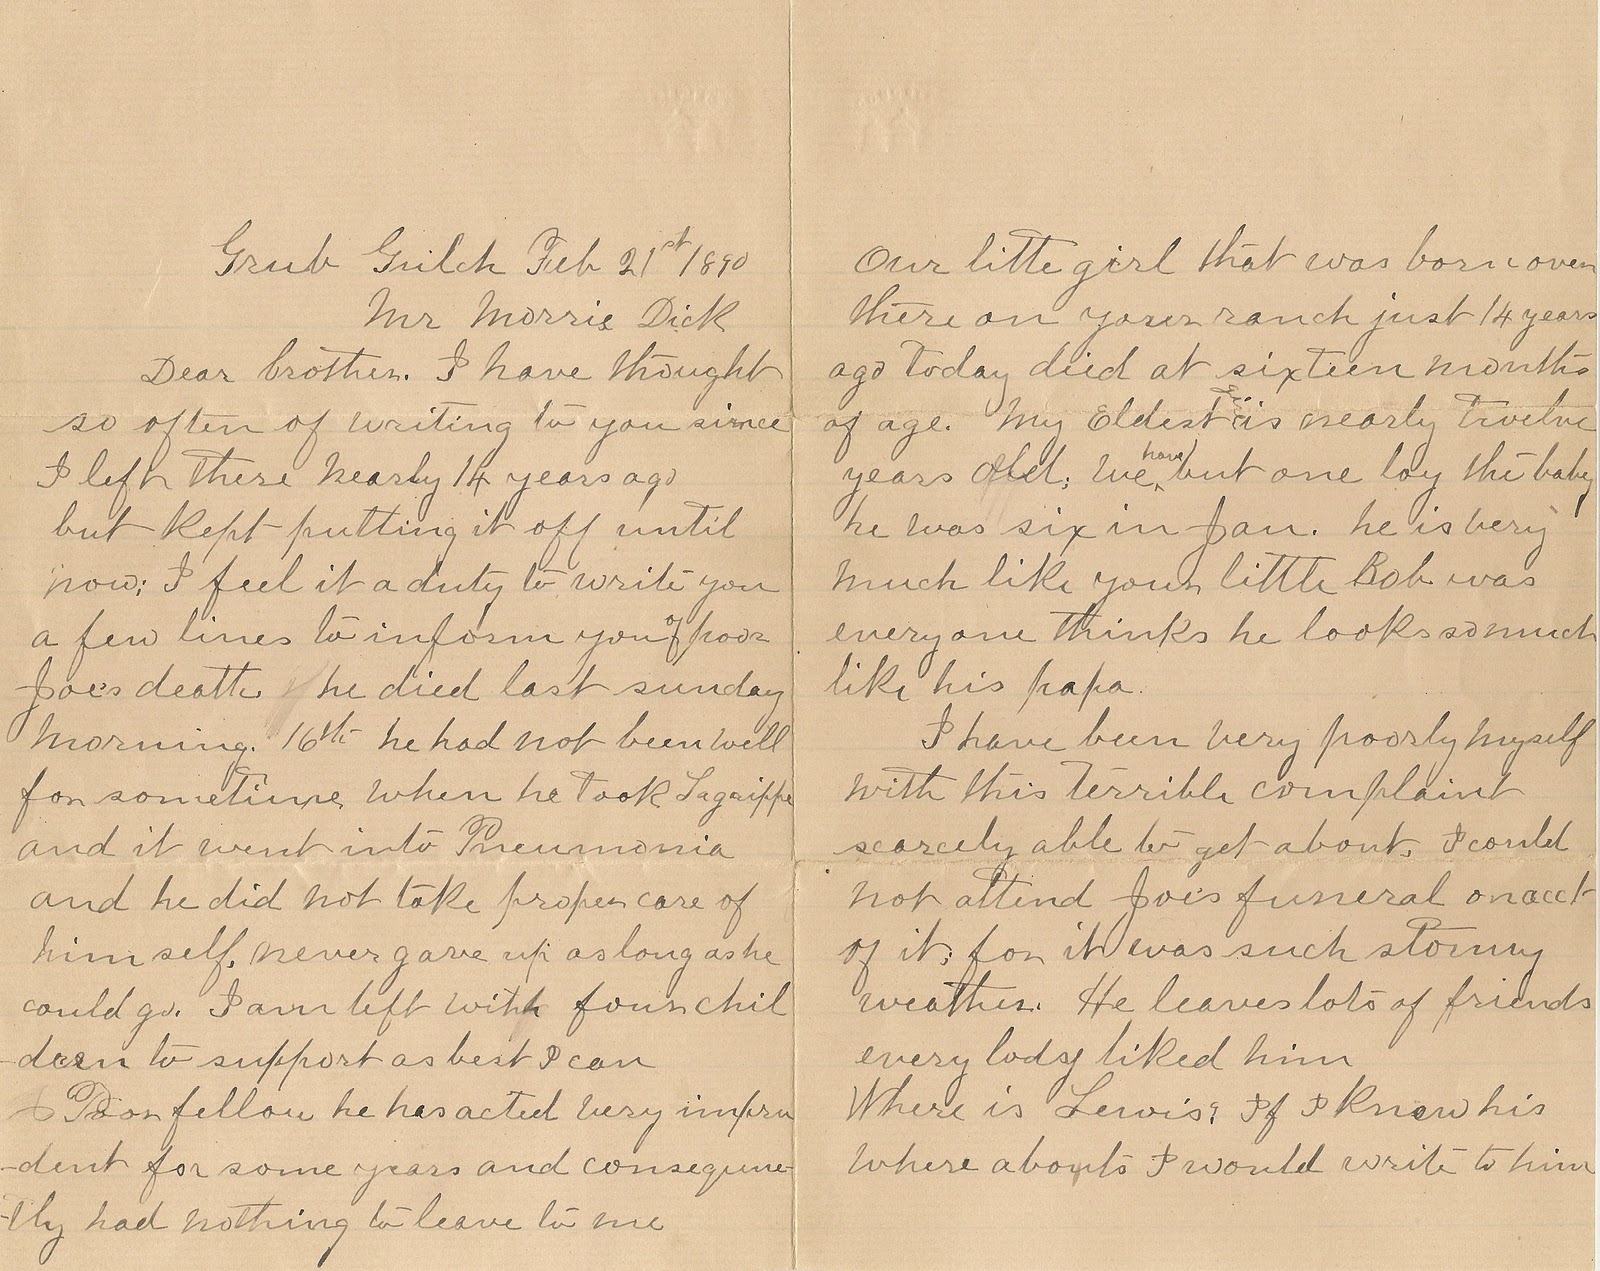 Grub Gulch Feb 21st 1890
Mr Morris Dick
Dear brother. I have thought
so often of writing to you since
I left there nearly 14 years ago
but kept putting it off until
now; I feel it a duty to write you
a few lines to inform you of poor
Joe's death he died last sunday
morning. 16th he had not been well
for sometime when he took Lagrippe
and it went into Pneumonia
and he did not take proper care of
himself, never gave up as long as he
could go. I am left with four chil
-dren to support as best I can
Poor fellow he has acted very impru
-dent for some years and consequen
-tly had nothing to leave to me
Our litte girl that was born over
there on your ranch just 14 years
ago today died at sixteen months
of age. My Eldest is nearly twelve
years old; We have but one boy the baby
he was six in Jan. he is very
much like your little Bob was
everyone thinks he looks so much
like his papa.
I have been very poorly myself
with this terrible complaint
scarcely able to get about. I could
not attend Joe's funeral on acct
of it; for it was such stormy
weather. He leaves lots of friends
every body liked him
Where is Lewis? If I knew his
where abouts I would write to him